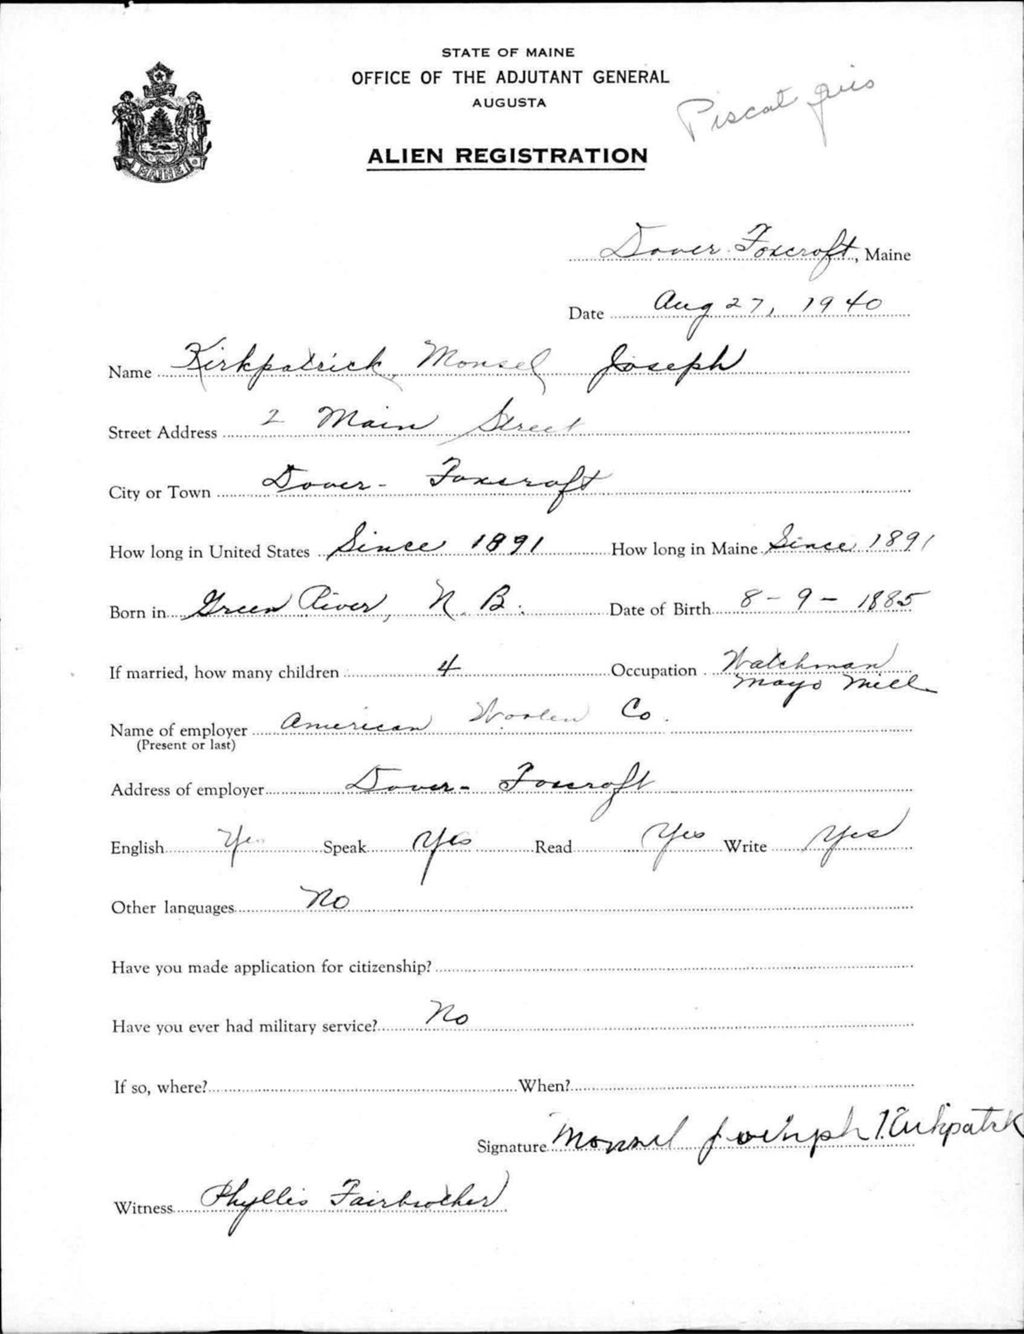 STATE OF MAINE
OFFICE OF THE ADJUTANT GENERAL
AUGUSTA
Piscataquis
ALIEN REGISTRATION
MAINE
Dover-Foxcroft, Maine
Date Aug 27, 1940
Name Kirkpatrick, Monsel Joseph
Street Address 2 Main Street
City or Town Dover-Foxcroft
How long in United States Since 1891 How long in Maine Since 1891
Born in Green River, N. B. Date of Birth 8-9-1885
If married, how many children 4 Occupation Watchman
Mayo Mill
Name of employer American Woolen Co.
(Present or last)
Address of employer Dover-Foxcroft
English Yes Speak Yes Read Yes Write Yes
Other languages No
Have you made application for citizenship?
Have you ever had military service? No
If so, where? When?
Signature Monsel Joehsph Kirkpatrk
Witness Phyllis Fairbrother